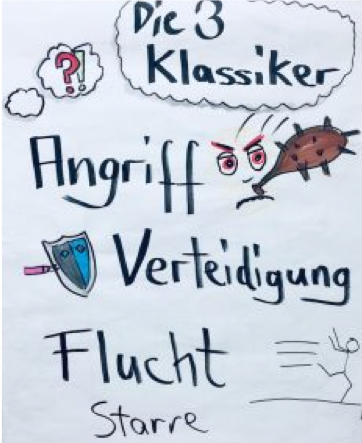 Die 3
Klassiker
?!
Angriff
Verteidigung
Flucht
Starre